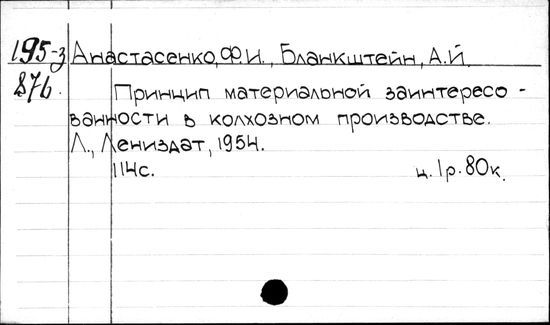 195-3 Анастасенко, Ф.И., Бланкштейн, А.Й.
876. Принцип материальной заинтересо-
ванности в колхозном производстве.
Л., Лениздат, 1954.
114с. ц. 1р. 80к.